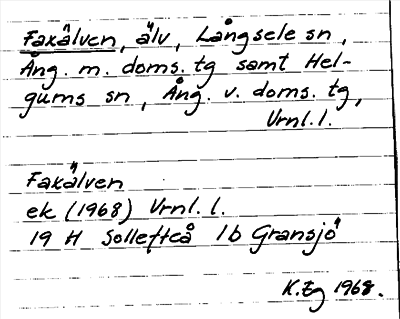 Faxälven, älv, Långsele sn,
Ång. m. doms. tg samt Hel-
gums sn, Ång. v. doms. tg,
Vrnl. l.
Faxälven
ek (1968) Vrnl. l.
19 H Sollefteå 1b Gransjö
K. Eg 1968.